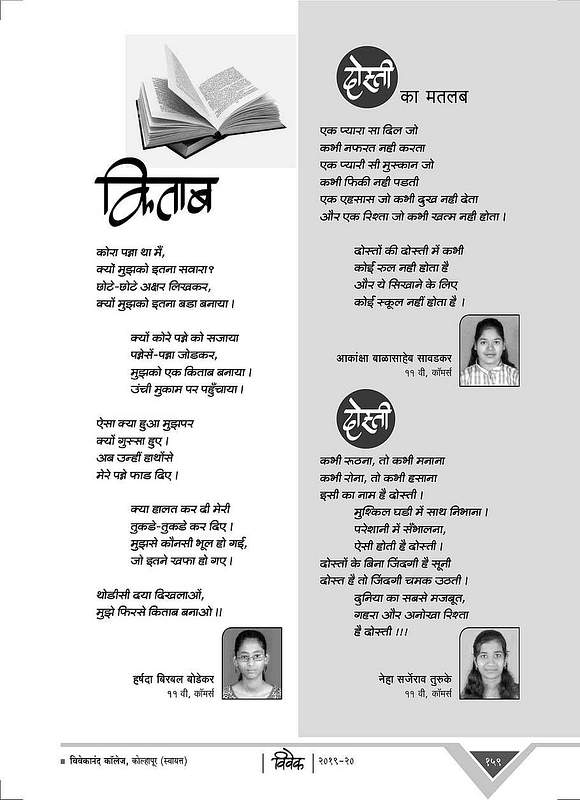 किताब
कोरा पन्ना था मैं,
क्यों मुझको इतना सवारा?
छोटे-छोटे अक्षर लिखकर,
क्यों मुझको इतना बडा बनाया।
क्यों कोरे पन्ने को सजाया
पन्नेसें-पन्ना जोडकर,
मुझको एक किताब बनाया।
उंची मुकाम पर पहुँचाया।
ऐसा क्या हुआ मुझपर
क्यों गुस्सा हुए।
अब उन्हीं हाथोंसे
मेरे पन्ने फाड दिए।
क्या हालत कर दी मेरी
तुकडे-तुकडे कर दिए।
मुझसे कौनसी भूल हो गई,
जो इतने खफा हो गए।
थोडीसी दया दिखलाओं,
मुझे फिरसे किताब बनाओ।।
हर्षदा बिरबल बोडेकर
११ वी, कॉमर्स
दोस्ती
का मतलब
एक प्यारा सा दिल जो
कभी नफरत नही करता
एक प्यारी सी मुस्कान जो
कभी फिकी नही पडती
एक एहसास जो कभी दुख नही देता
और एक रिश्ता जो कभी खत्म नही होता।
दोस्तों की दोस्ती में कभी
कोई रुल नही होता है
और ये सिखाने के लिए
कोई स्कूल नहीं होता है ।
आकांक्षा बाळासाहेब सावडकर
११ वी, कॉमर्स
दोस्ती
कभी रूठना, तो कभी मनाना
कभी रोना, तो कभी हसाना
इसी का नाम है दोस्ती।
मुश्किल घडी में साथ निभाना।
परेशानी में सँभालना,
ऐसी होती है दोस्ती।
दोस्तों के बिना जिंदगी है सूनी
दोस्त है तो जिंदगी चमक उठती।
दुनिया का सबसे मजबूत,
गहरा और अनोखा रिश्ता
है दोस्ती !!!
नेहा सर्जेराव तुरुके
११ वी, कॉमर्स
विवेकानंद कॉलेज, कोल्हापूर (स्वायत्त)
विवेक
२०१९-२०
१५९